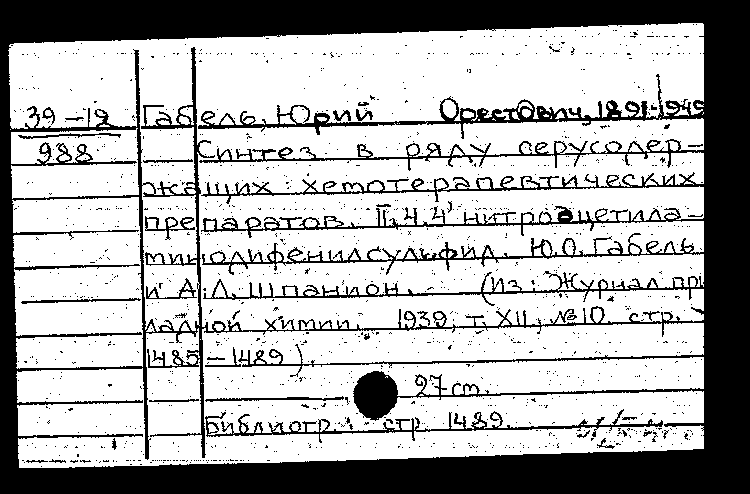 39-12
988
Габель, Юрий Орестович, 1891-1949
Синтез в ряду серусодер-
жащих хемотерапевтических
препаратов. II, 4,4' нитроацетила-
минодифенилсульфид. Ю.О. Габель
и А.Л. Шпанион. (Из: Журнал при
ладной химии. 1939, т. XII, №10 стр.
1485-1489).
27 см.
Библиогр.: стр 1489.